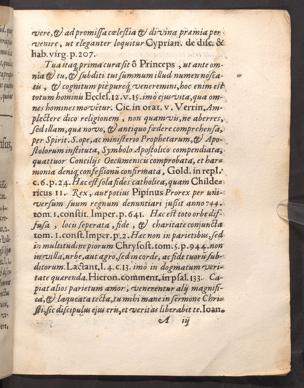 vere, & ad promissa cælestia & divina præmia per
venire, ut eleganter loquitur Cyprian. de disc. &
hab. virg. p. 207.
Tua itaq; prima cura sit ô Princeps, ut ante om
nia & tu, & subditi tui summum illud numen nosca
tis, & cognitum piè purèq; veneremini, hoc enim est
totum hominis Eccles. 12. v. 15. imò ejus vita, qua om
nes homines movetur. Cic. in orat. v. Verrin. Am-
plectere dico religionem, non quamvis, ne aberres,
sed illam, quæ novo, & antiquo fœdere comprehensa,
per Spirit. S. ope, ac ministerio Prophetarum, & A-
postolorum instituta, Symbolo Apostolico compendiata,
quattuor Concilijs Oecumenicis comprobata, et har
monia deniq; confessionū confirmata, Gold. in repl.
c. 6. p. 24. Hæc est sola fides catholica, quam Childe
ricus II. Rex, aut potius Pipinus Prorex per uni-
versum suum regnum denuntiari jussit anno 744.
tom. 1. constit. Imper. p. 641. Hæc est toto orbe dif-
fusa, loci seperata, fide, & charitate conjuncta
tom. 1. const. Imper. p. 2. Hæc non in parietibus, sed
in multitudine piorum Chrysost. tom. 5. p. 944. non
in villa, urbe, aut agro, sed in corde, ac fide tuorū sub-
ditorum. Lactant. l. 4. c. 13. imò in dogmatum veri-
tate quærenda. Hieron. comment. in psal. 133. Ca-
piat alios parietum amor, venerentur alij magnifi-
ca, & laqueata tecta, tu mihi mane in sermone Chri
sti, sic discipulus ejus eris, et veritas liberabit te. Ioan.
A iij